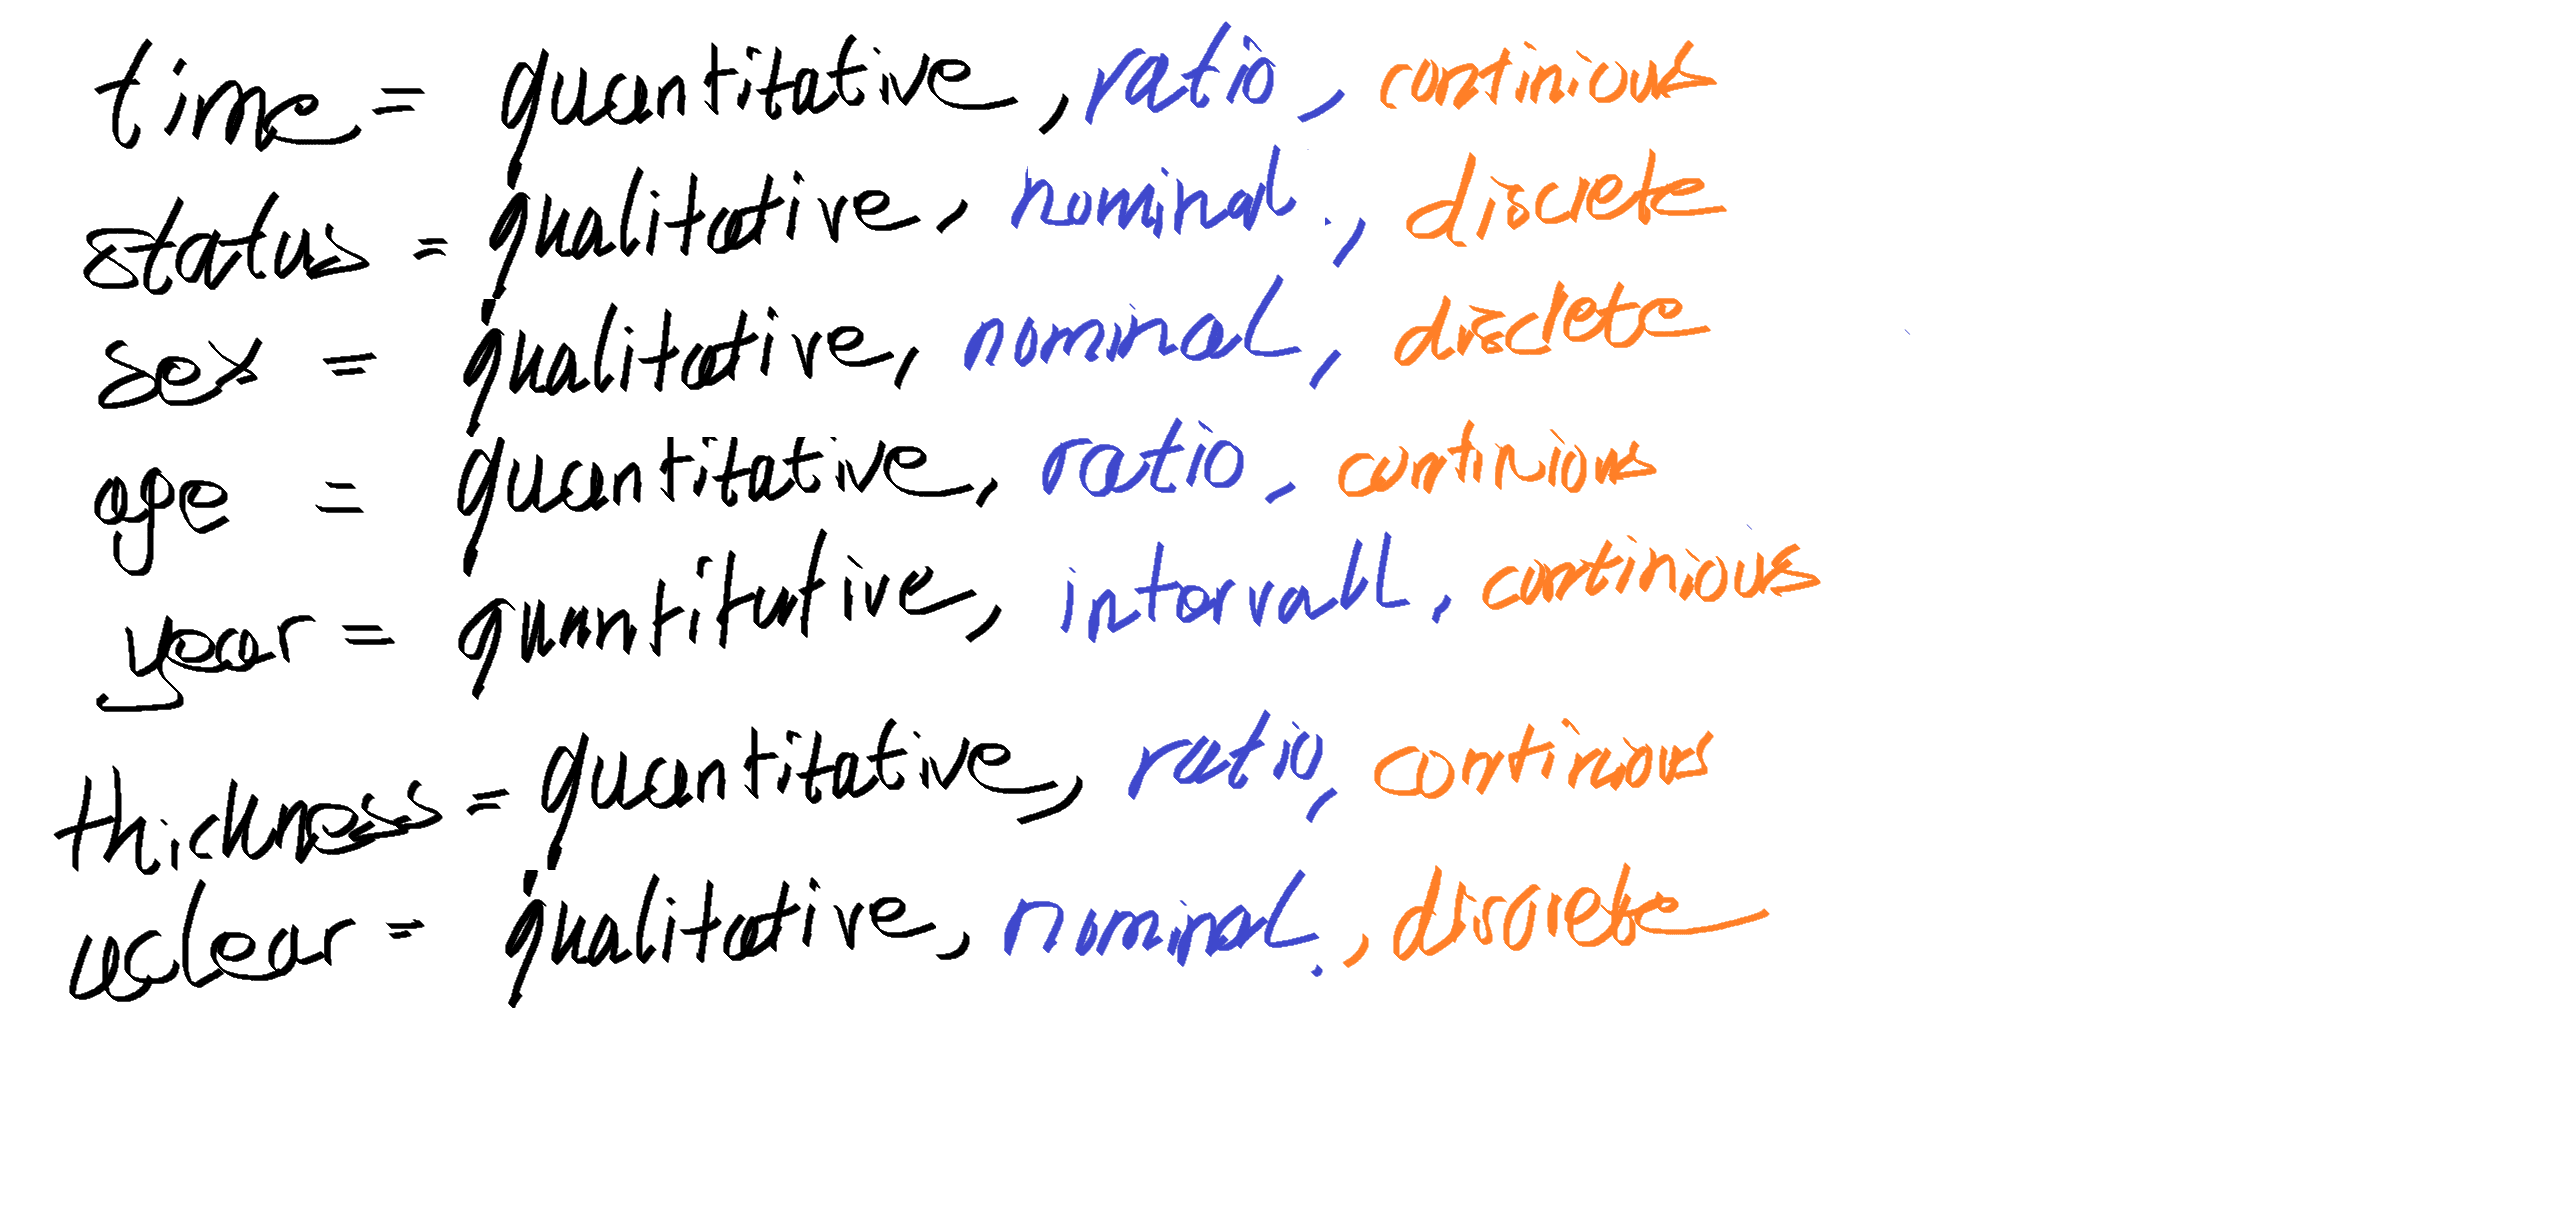 time = quantitative, ratio, continious
status = qualitative, nominal., discrete
sex = qualitative, nominal, disclete
age = quantitative, ratio, continious
year = quantitutive, intervall, continious
thickness = quantitative, ratio, continious
uclear = qualitative, nominal., discrete